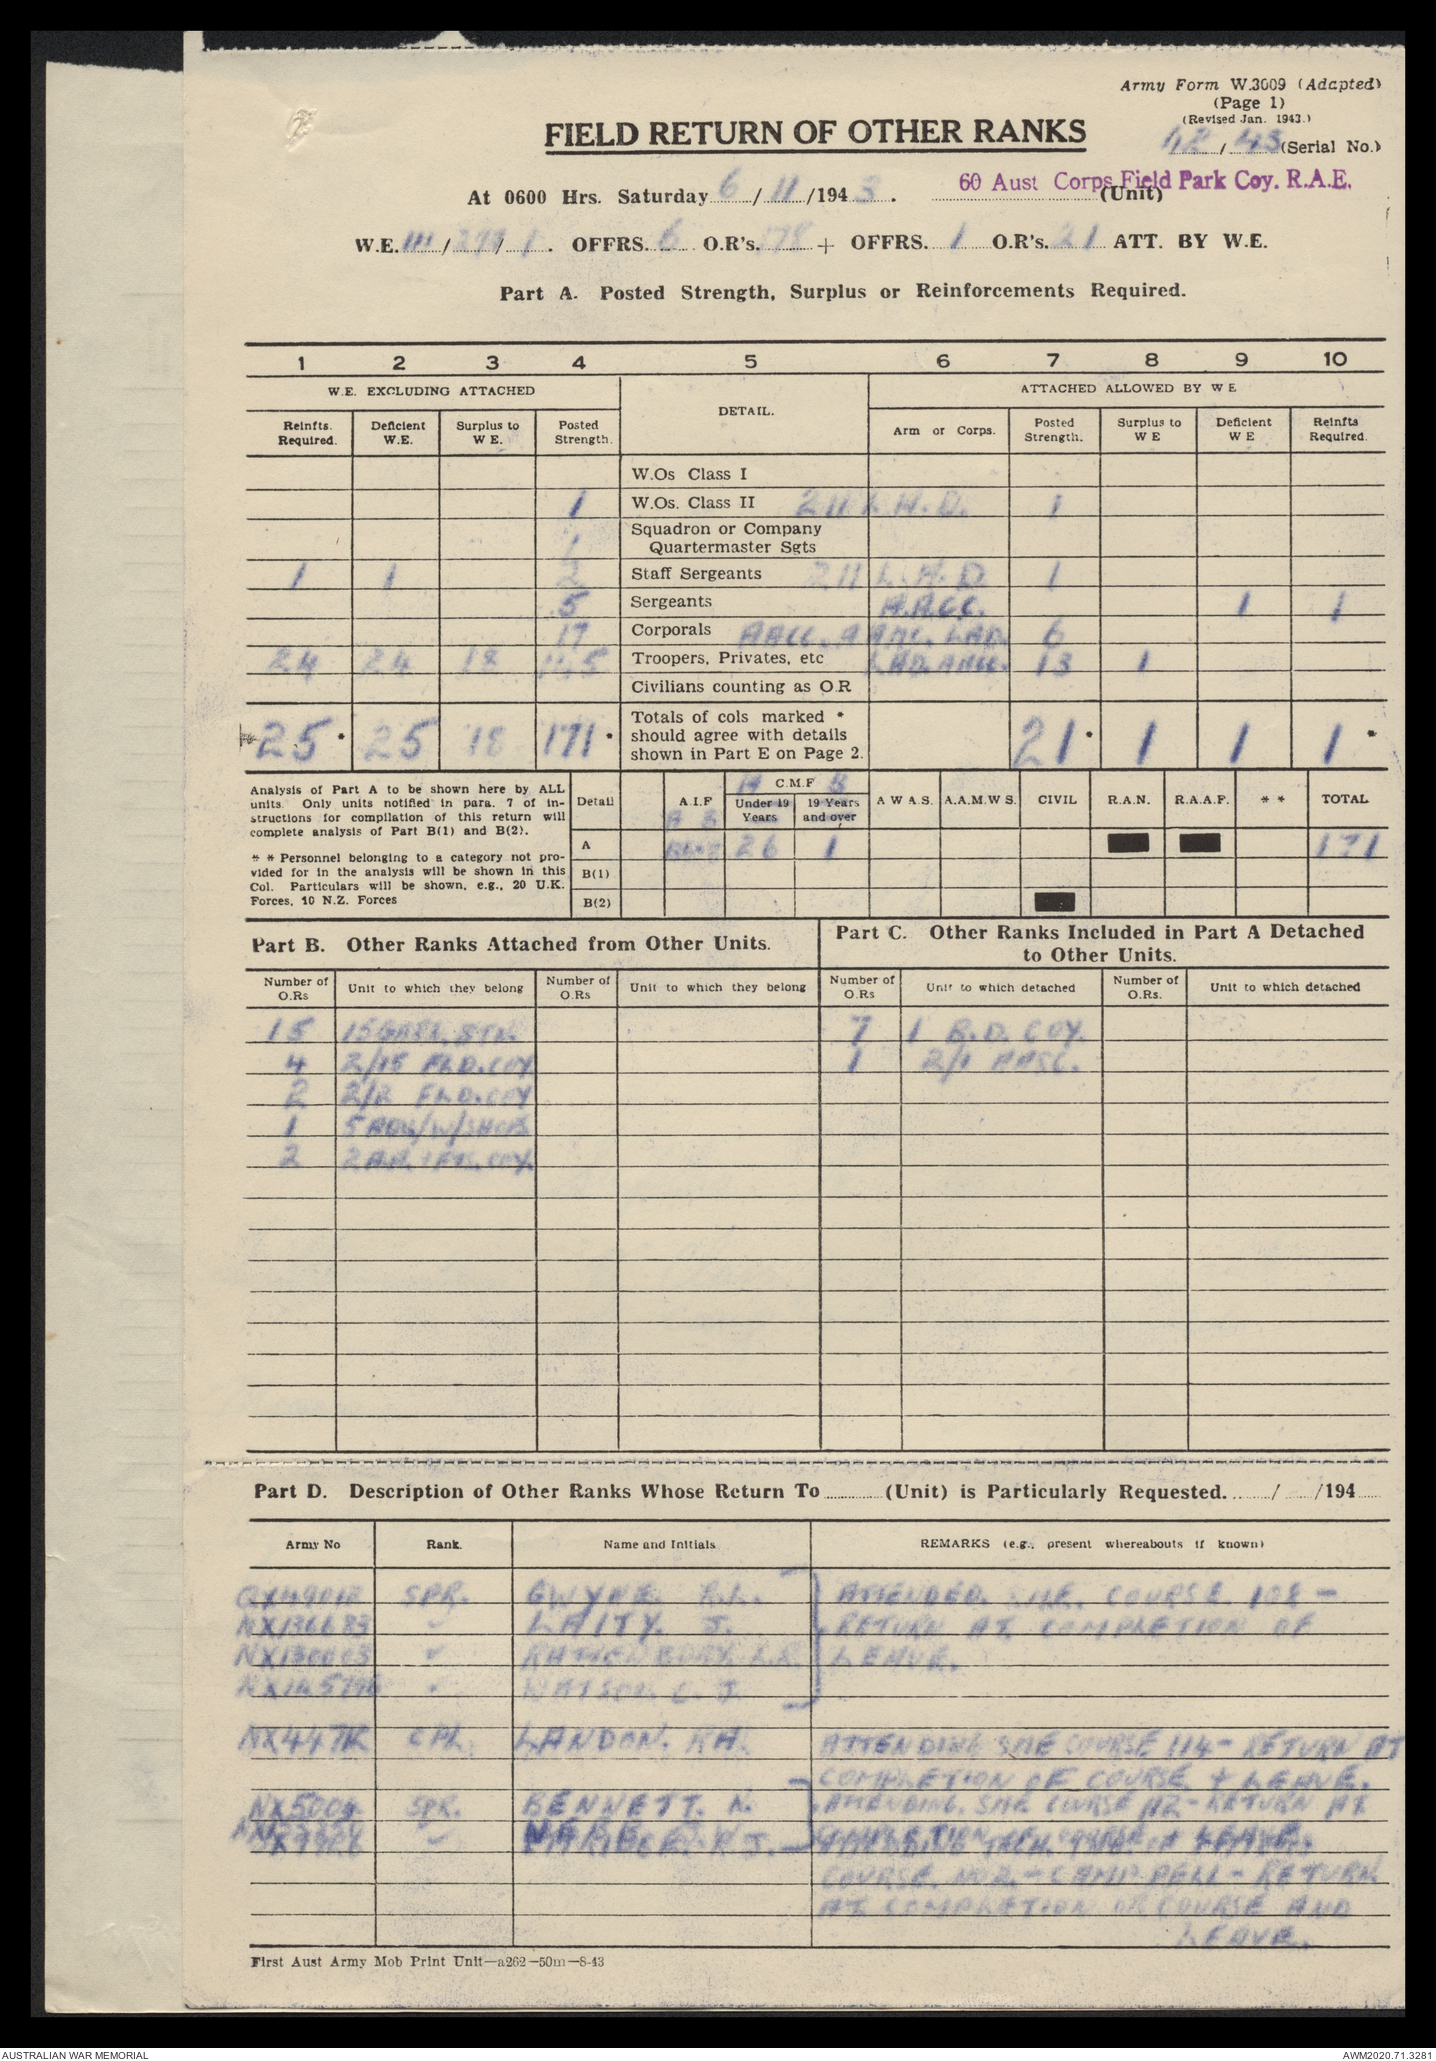 Army Form W.3009 (Adapted)
(Page 1)
(Revised Jan. 1943.)
FIELD RETURN OF OTHER RANKS
42 / 43 (Serial No.)
At 0600 Hrs. Saturday 6 / 11 /194 3 . 60 Aust Corps Field Park Coy. R.A.E. (Unit)
W.E. III / / 1 . OFFRS. 6 O.R's. 178 + OFFRS. 1 O.R's. 21 ATT. BY W.E.
Part A. Posted Strength, Surplus or Reinforcements Required.
1 2 3 4 5 6 7 8 9 10
W.E. EXCLUDING ATTACHED DETAIL. ATTACHED ALLOWED BY W E
Reinfts. Required. Deficient W.E. Surplus to W E. Posted Strength. Arm or Corps. Posted Strength. Surplus to W E Deficient W E Reinfts Required.
W.Os Class I
1 W.Os. Class II 211 L.A.D. 1
1 Squadron or Company Quartermaster Sgts
1 1 2 Staff Sergeants 211 L.A.D. 1
5 Sergeants A.A.C.C. 1 1
17 Corporals AACC. LAD. 6
24 24 18 145 Troopers, Privates, etc LAD. AACC. 13 1
Civilians counting as O.R
25 * 25 18 171 * Totals of cols marked * should agree with details shown in Part E on Page 2. 21 * 1 1 1 *
Analysis of Part A to be shown here by ALL
units. Only units notified in para. 7 of in-
structions for compilation of this return will
complete analysis of Part B(1) and B(2).
* * Personnel belonging to a category not pro-
vided for in the analysis will be shown in this
Col. Particulars will be shown, e.g., 20 U.K.
Forces, 10 N.Z. Forces
Detail A.I.F A B A C.M.F B Under 19 Years 19 Years and over A W A S. A.A.M.W S. CIVIL R.A.N. R.A.A.F. * * TOTAL
A 26 1 171
B(1)
B(2)
Part B. Other Ranks Attached from Other Units.
Part C. Other Ranks Included in Part A Detached
to Other Units.
Number of O.Rs Unit to which they belong Number of O.Rs Unit to which they belong Number of O.Rs Unit to which detached Number of O.Rs. Unit to which detached
15 15 GARR. BTN. 7 1 B.D. COY.
4 2/15 FLD. COY. 1 2/1 AASC.
2 2/2 FLD. COY
1 5 W/SHOPS
2 COY.
Part D. Description of Other Ranks Whose Return To (Unit) is Particularly Requested. / /194
Army No Rank. Name and Initials REMARKS (e.g., present whereabouts if known)
SPR. GWYNE. R.L. ATTENDED. SME. COURSE. 108 -
NX136683 " LAITY. J. RETURN AT COMPLETION OF
NX130003 " RATTENBURY. L.R. LEAVE.
" WATSON. C. J.
CPL. LANDON. RA. ATTENDING SME COURSE 114 - RETURN AT
COMPLETION OF COURSE + LEAVE.
NX5004 SPR. BENNETT. N. ATTENDING. SME COURSE 112 - RETURN AT
" R J. COMPLETION OF LEAVE.
COURSE. NO 2. - CAMP PELL - RETURN
AT COMPLETION OF COURSE AND
LEAVE.
First Aust Army Mob Print Unit—a262—50m—8-43
AUSTRALIAN WAR MEMORIAL
AWM2020.71.3281